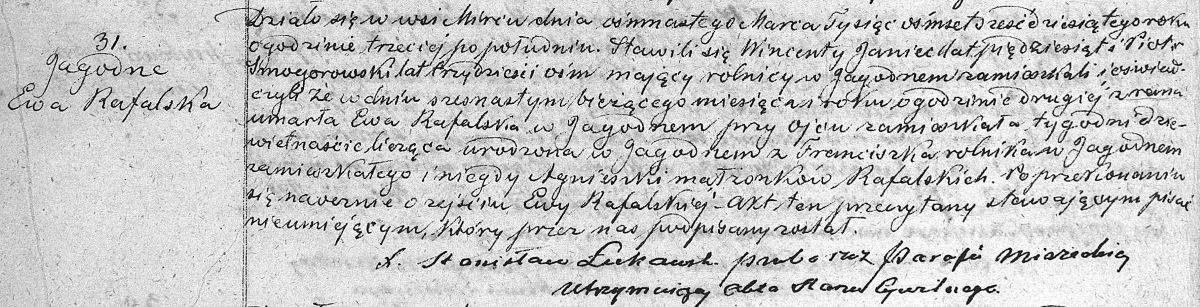 31.
Jagodne
Ewa Rafalska
Działo się w wsi Mircu dnia ośmnastego Marca Tysiąc ośmset sześćdziesiątego roku
o godzinie trzeciej po południu. Stawili się Wincenty Janiec lat pięćdziesiąt i Piotr
Smogorowski lat trzydzieści ośm mający rolnicy w Jagodnem zamieszkali i oświad-
czyli że w dniu szesnastym bieżącego miesiąca i roku o godzinie drugiej z rana
umarła Ewa Rafalska w Jagodnem przy ojcu zamieszkała tygodni dzie-
więtnaście licząca urodzona w Jagodnem z Franciszka rolnika w Jagodnem
zamieszkałego i niegdy Agnieszki małżonków Rafalskich. Po przekonaniu
się naocznie o zejściu Ewy Rafalskiéj Akt ten przeczytany stawającym pisać
nieumiejącym, który przez nas podpisany został.
X. Stanisław proboszcz Parafii Mirzeckiej
utrzymujący Akta Stanu Cywilnego.